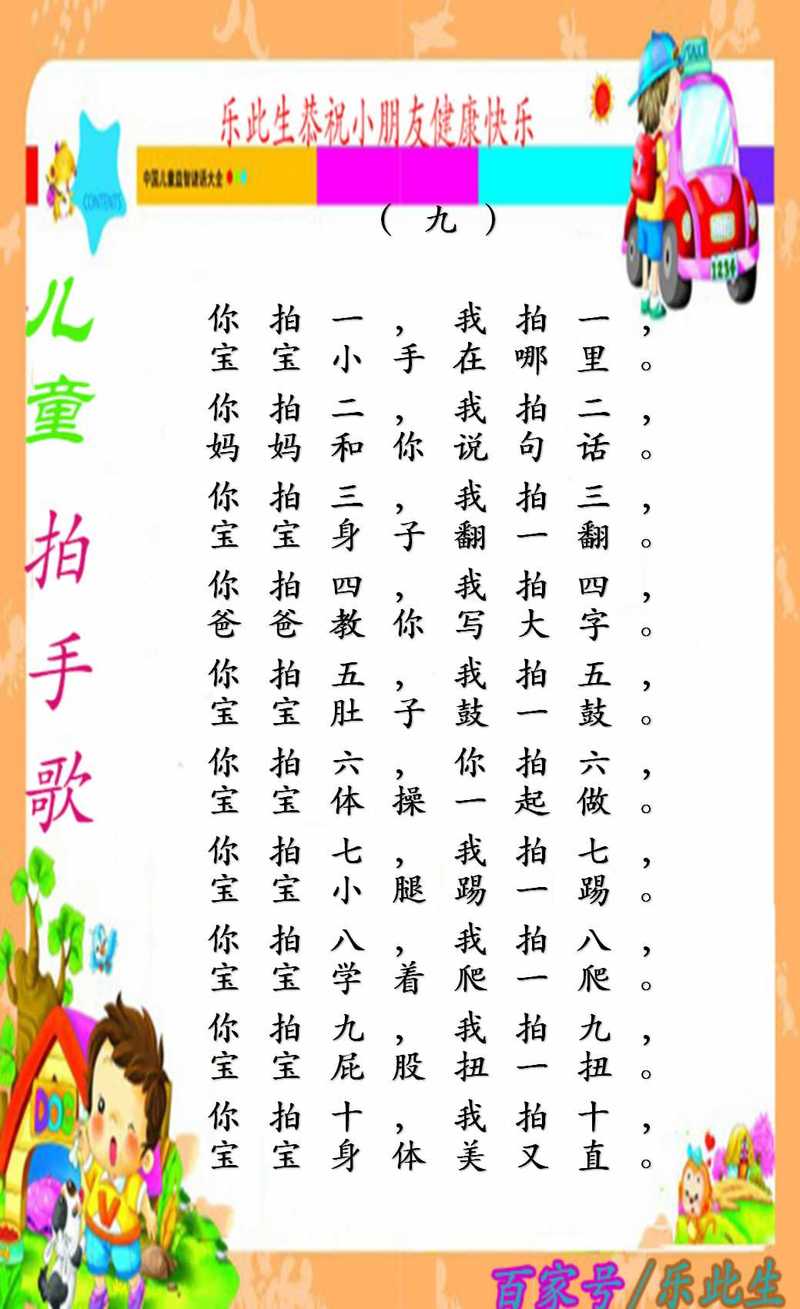 乐此生恭祝小朋友健康快乐
中国儿童益智谜语大全
CONTENTS
TAXI
1234
（九）
儿童拍手歌
你拍一，我拍一，
宝宝小手在哪里。
你拍二，我拍二，
妈妈和你说句话。
你拍三，我拍三，
宝宝身子翻一翻。
你拍四，我拍四，
爸爸教你写大字。
你拍五，我拍五，
宝宝肚子鼓一鼓。
你拍六，你拍六，
宝宝体操一起做。
你拍七，我拍七，
宝宝小腿踢一踢。
你拍八，我拍八，
宝宝学着爬一爬。
你拍九，我拍九，
宝宝屁股扭一扭。
你拍十，我拍十，
宝宝身体美又直。
DOG
V
百家号/乐此生